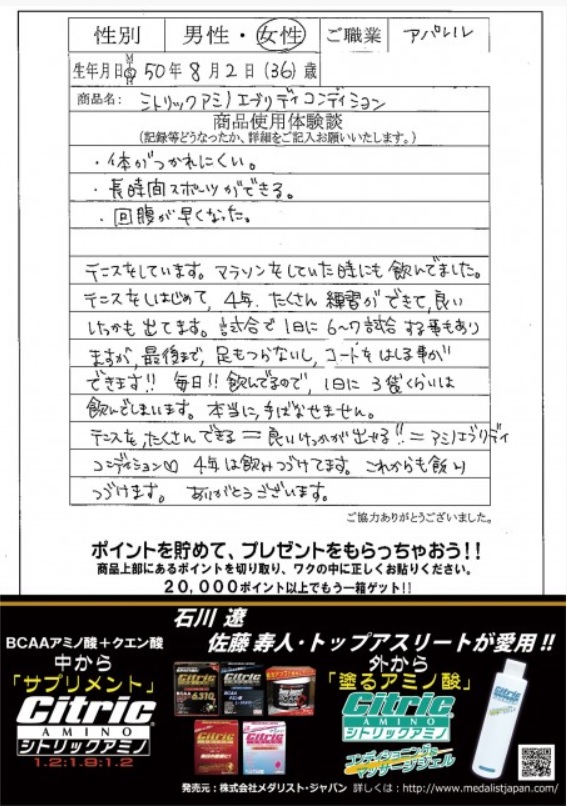 性別 男性・女性 ご職業 アパレル
生年月日 M T S H 50年 8月 2日 (36)歳
商品名: シトリックアミノエブリディコンディション
商品使用体験談
(記録等どうなったか、詳細をご記入お願いいたします。)
・体がつかれにくい。
・長時間スポーツができる。
・回腹が早くなった。
テニスをしています。マラソンをしていた時にも飲んでました。
テニスをしはじめて、4年、たくさん練習ができて、良い
けっかも出てます。試合で1日に6〜7試合する事もあり
ますが、最後まで、足もつらないし、コートをはしる事が
できます!! 毎日!!飲んでるので、1日に3袋くらいは
飲んでしまいます。本当に、手ばなせません。
テニスを、たくさんできる=良いけっかが出せる!!=アミノエブリディ
コンディション♡ 4年は飲みつづけてます。これからも飲り
つづけます。ありがとうございます。
ご協力ありがとうございました。
ポイントを貯めて、プレゼントをもらっちゃおう!!
商品上部にあるポイントを切り取り、ワクの中に正しくお貼りください。
20,000ポイント以上でもう一箱ゲット!!
石川 遼
佐藤 寿人・トップアスリートが愛用!!
BCAAアミノ酸+クエン酸
中から
「サプリメント」
Citric
AMINO
シトリックアミノ
1.2:1.9:1.2
外から
「塗るアミノ酸」
Citric
AMINO
シトリックアミノ
コンディショニング&
マッサージジェル
発売元:株式会社メダリスト・ジャパン 詳しくは:http://www.medalistjapan.com/